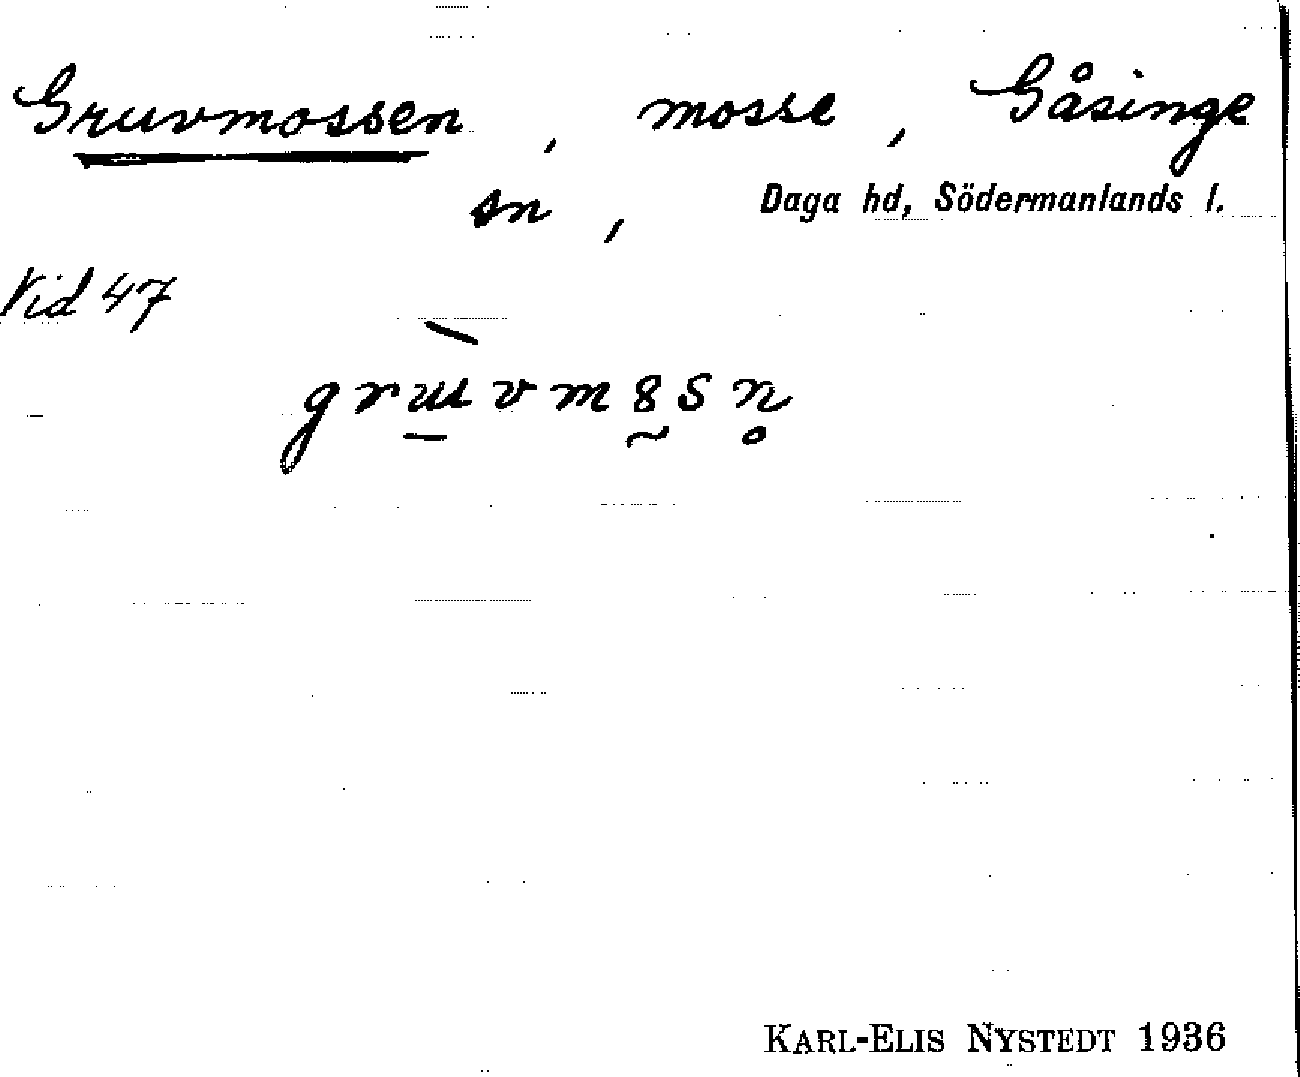 Gruvmossen, mosse, Gåsinge
sn, Daga hd, Södermanlands l.
Vid 47
KARL-ELIS NYSTEDT 1936